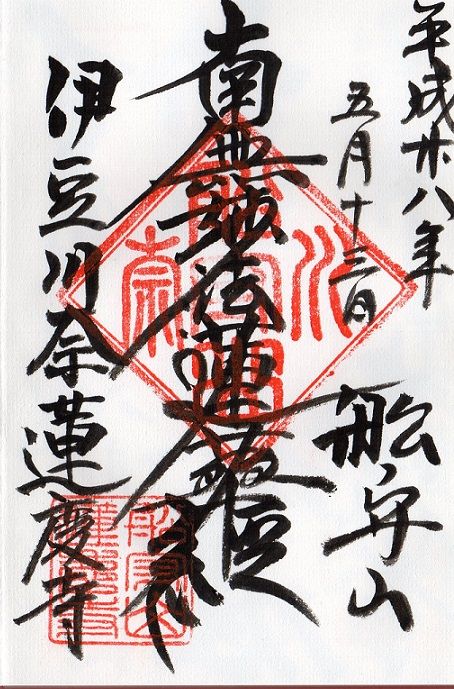 平成廿八年
五月十三日
船守山
南無妙法蓮華経
伊豆川奈蓮慶寺
川奈